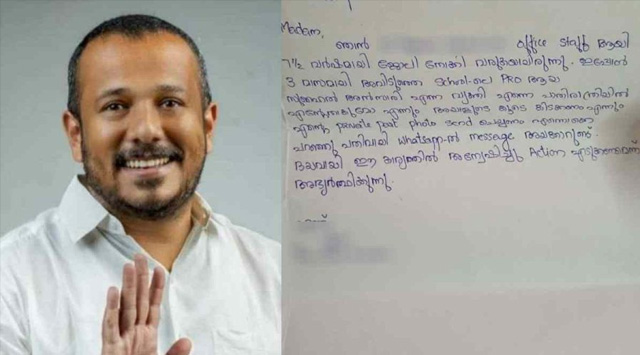 Madam,
ഞാൻ office staff ആയി
7½ വർഷമായി ജോലി നോക്കി വരുകയായിരുന്നു. ഇപ്പോൾ
3 മാസമായി അവിടുത്തെ School-ലെ PRO ആയ
എന്ന വ്യക്തി എന്നെ
എന്നും അയാളുടെ കൂടെ കിടക്കണം എന്നും
എന്റെ private part photo send ചെയ്യണം എന്നൊക്കെ
പറഞ്ഞു പതിവായി Whatsapp-ൽ message അയക്കാറുണ്ട്.
ദയവായി ഈ കാര്യത്തിൽ അന്വേഷിച്ചു Action എടുക്കണമെന്ന്
അഭ്യർത്ഥിക്കുന്നു.
എന്ന്